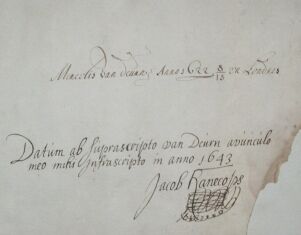 Marcelis van Deurn; Anno 1622 8/18 en Londres
Datum ab supra scripto van Deurn avunculo
meo mihi infrascripto in anno 1643
Jacob Haneco